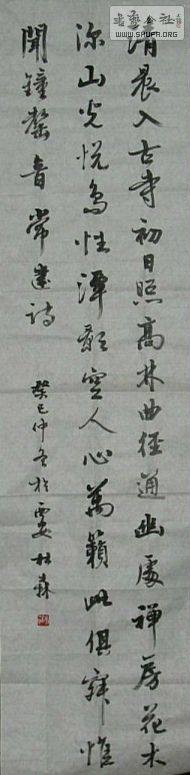 清晨入古寺初日照高林曲径通幽處禅房花木
深山光悦鸟性潭影空人心萬籁此俱寂惟
聞鐘磬音 常建詩
癸巳仲冬於西安林森
书艺公社
www.SHUFA.ORG